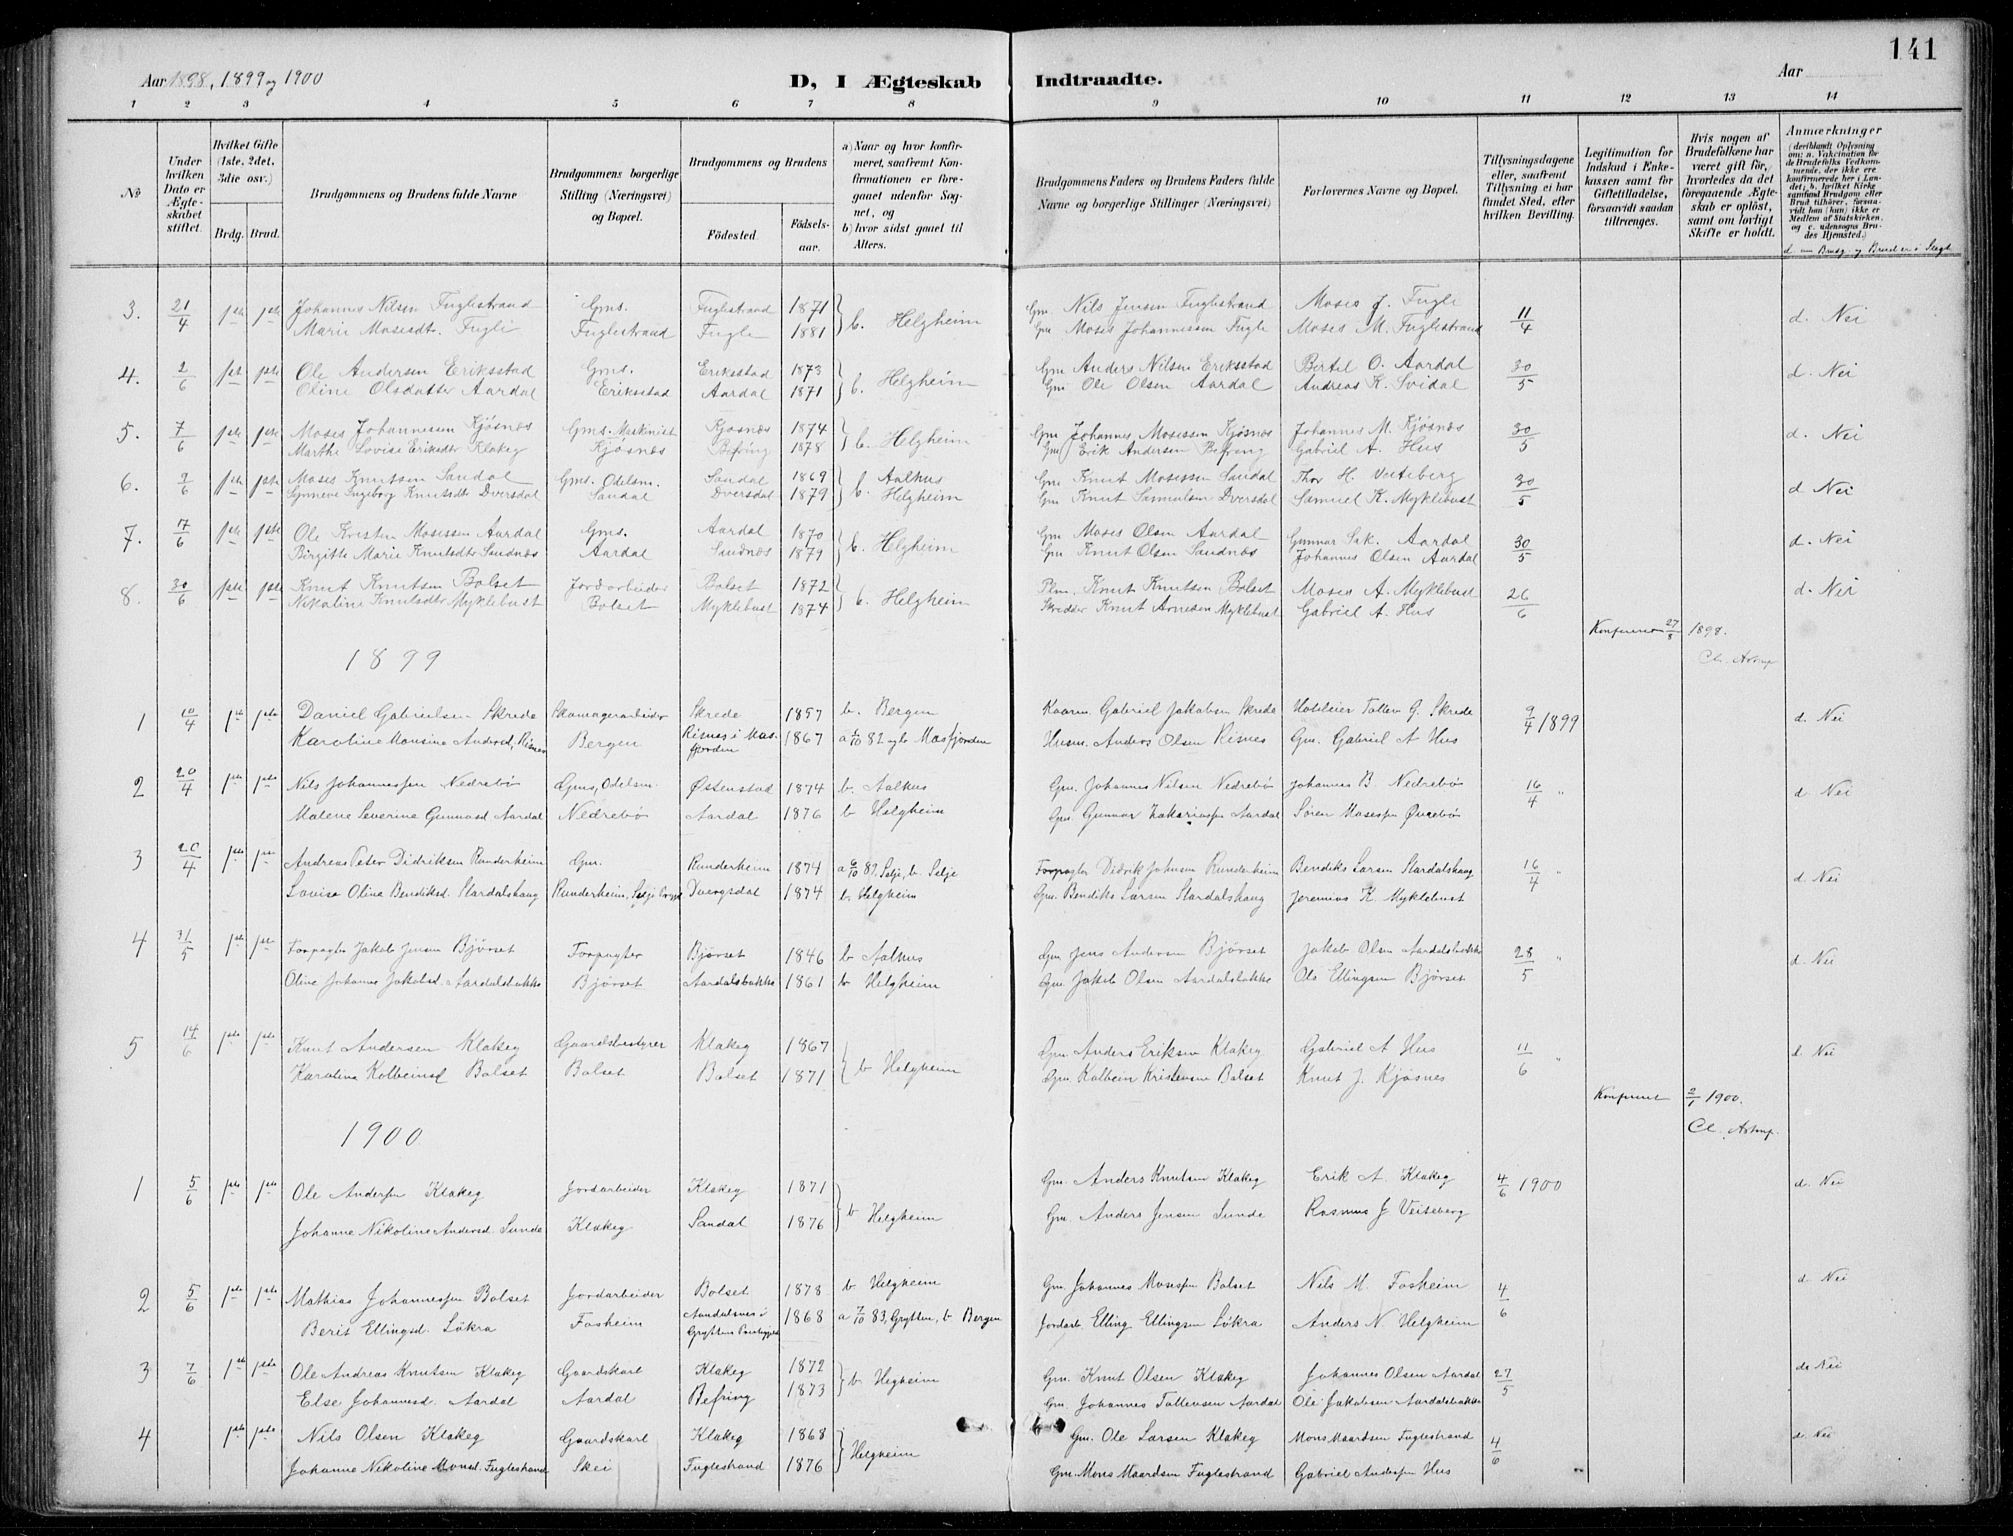 141
Aar 1898, 1899 og 1900
D, I Ægteskab Indtraadte.
Aar
1 2 3 4 5 6 7 8 9 10 11 12 13 14
No
Under hvilken Dato er Ægteskabet stiftet.
Hvilket Gifte (1ste, 2det, 3die osv.)
Brdg. Brud.
Brudgommens og Brudens fulde Navne
Brudgommens borgerlige Stilling (Næringsvei) og Bopæl.
Brudgommens og Brudens
Fødested.
Fødselsaar.
a) Naar og hvor konfirmeret, saafremt Konfirmationen er foregaaet udenfor Sognet, og
b) hvor sidst gaaet til Alters.
Brudgommens Faders og Brudens Faders fulde Navne og borgerlige Stillinger (Næringsvei)
Forlovernes Navne og Bopæl.
Tillysningsdagene eller, saafremt Tillysning ei har fundet Sted, efter hvilken Bevilling.
Legitimation for Indskud i Enkekassen samt for Giftetilladelse, forsaavidt saadan tiltrænges.
Hvis nogen af Brudefolkene har været gift før, hvorledes da det foregaaende Ægteskab er opløst, samt om lovligt Skifte er holdt.
Anmærkninger (deriblandt Oplysning om: a. Vakcination for de Brudefolks Vedkommende, der ikke ere konfirmerede her i Landet; b. hvilket Kirkesamfund Brudgom eller Brud tilhører, forsaavidt han (hun) ikke er Medlem af Statskirken, og c. udensogns Brudes Hjemsted.)
d. om Brudg. og Brud er i Slegt
3. 21/4 1ste 1ste Johannes Nilsen Fuglestrand Gms. Fuglestrand 1871 Gm. Nils Jensen Fuglestrand Moses J. Fugle 11/4 d. Nei
Marie Mosesdt. Fugle Fuglestrand Fugle 1881 b. Helgheim Gm. Moses Johannessen Fugle Moses M. Fuglestrand
4. 2/6 1ste 1ste Ole Andersen Eriksstad Gms. Eriksstad 1873 Gm Anders Nilsen Eriksstad Bertil O. Aardal 30/5 d. Nei
Oline Olsdatter Aardal Eriksstad Aardal 1871 b. Helgheim Gm. Ole Olsen Aardal Andreas K. Svidal
5. 7/6 1ste 1ste Moses Johannessen Kjøsnes Gms. Maskinist Kjøsnæs 1874 Gm Johannes Mosessen Kjøsnæs Johannes M. Kjøsnæs 30/5 d. Nei
Marthe Lovise Eriksdtr Klakeg Kjøsnæs Befring 1878 b. Helgheim Gm Erik Andersen Befring Gabriel A. Hus
6. 9/6 1ste 1ste Moses Knutsen Sandal Gms. Odelsm. Sandal 1869 b. Aalhus Gm. Knut Mosessen Sandal Thor H. Veiteberg 30/5 d Nei
Synneve Ingeborg Knutsdt. Dversdal Sandal Dversdal 1879 b. Helgheim Gm Knut Samuelsen Dversdal Samuel K. Myklebust
7. 17/6 1ste 1ste Ole Kristen Mosessen Aardal Gms. Aardal 1870 Gm Moses Olsen Aardal Gunnar Sak. Aardal 30/5 d. Nei
Birgitte Marie Knutsdtr Sandnæs Aardal Sandnæs 1879 b. Helgheim Gm Knut Olsen Sandnæs Johannes Olsen Aardal
8. 30/6 1ste 1ste Knut Knutsen Bolset Jordarbeider Bolset 1872 Plm. Knut Knutsen Bolset Moses A. Myklebust 26/6 d. Nei
Nikoline Knutsdtr Myklebust Bolset Myklebust 1874 b. Helgheim Skredder Knut Arnesen Myklebust Gabriel A. Hus
27/8 1898.
1899
Cl. Astrup
1 10/4 1ste 1ste Daniel Gabrielsen Skrede Skomagerarbeider Skrede 1857 b. Bergen Kaarm. Gabriel Jakobsen Skrede Hoteleier Tollev G. Skrede 9/4 1899 d. Nei
Karoline Monsine Andersd. Risnes Bergen Risnes i Masfjorden 1867 82 og b. Masfjorden Husm. Anders Olsen Risnes Gm. Gabriel A Hus
2 20/4 1ste 1ste Nils Johannessen Nedrebø Gms, Odelsm. Østenstad 1874 b. Aalhus Gm. Johannes Nilsen Nedrebø Johannes B. Nedrebø 16/4 " d Nei
Malene Severine Gunnard Aardal Nedrebø Aardal 1876 b Helgheim Gm. Gunnar Zakariassen Aardal Søren Mosessen Øvrebø
3 20/4 1ste 1ste Andreas Peter Didriksen Runderheim Gm. Runderheim 1874 a 6/10 89, Selje, b. Selje Forpagter Didrik Johnsen Runderheim Bendiks Larsen Stardalshaug 16/4 " d. Nei
Lovise Oline Bendiksd. Stardalshaug Runderheim, Selje Dvergsdal 1874 b. Helgheim Gm. Bendiks Larsen Stardalshaug Jeremias K. Myklebust
4 31/5 1ste 1ste Forpagter Jakob Jensen Bjørset Forpagter Bjørset 1846 b Aalhus Gm Jens Andersen Bjørset Jakob Olsen Aardalsbakke 28/5 " d. Nei
Oline Johanne Jakobsd. Aardalsbakke Bjørset Aardalsbakke 1861 b Helgheim Gm. Jakob Olsen Aardalsbakke Ole Ellingsen Bjørset
5 14/6 1ste 1ste Knut Andersen Klakeg Gaardsbestyrer Klakeg 1867 Gm. Anders Eriksen Klakeg Gabriel A Hus 11/6 " d. Nei
Karoline Kolbeinsd Bolset Bolset Bolset 1871 b Helgheim Gm. Kolbein Kristensen Bolset Knut J. Kjøsnes
Konfereret 2/1 1900.
1900
Cl. Astrup.
1 5/6 1ste 1ste Ole Andersen Klakeg Jordarbeider Klakeg 1871 Gm. Anders Knutsen Klakeg Erik A. Klakeg 4/6 1900 d. Nei
Johanne Nikoline Andersd. Sunde Klakeg Sandal 1876 b Helgheim Gm. Anders Jensen Sunde Rasmus J Veiteberg
2 5/6 1ste 1ste Mathias Johannessen Bolset Jordarbeider Bolset 1878 b Helgheim Gm. Johannes Mosessen Bolset Nils M. Fosheim 4/6 d. Nei
Berit Ellingsd. Løkra Fosheim Aandalsnes i Grytten 1868 a 7/10 83, Grytten, b Bergen Jordarb. Elling Ellingsen Løkra Anders N. Helgheim
3 7/6 1ste 1ste Ole Andreas Knutsen Klakeg Gaardskarl Klakeg 1872 Gm. Knut Olsen Klakeg Johannes Olsen Aardal 27/5 d. Nei
Else Johannesd. Aardal Aardal Befring 1873 b Helgheim Gm. Johannes Tollevsen Aardal Ole Jakobsen Aardalsbakke
4 1ste 1ste Nils Olsen Klakeg Gaardskarl Klakeg 1868 Gm. Ole Larsen Klakeg Mons Maardsen Fuglestrand 4/6 d. Nei
Johanne Nikoline Monsd. Fuglestrand Skei Fuglestrand 1876 Helgheim Gm. Mons Maardsen Fuglestrand Gabriel Andersen Hus